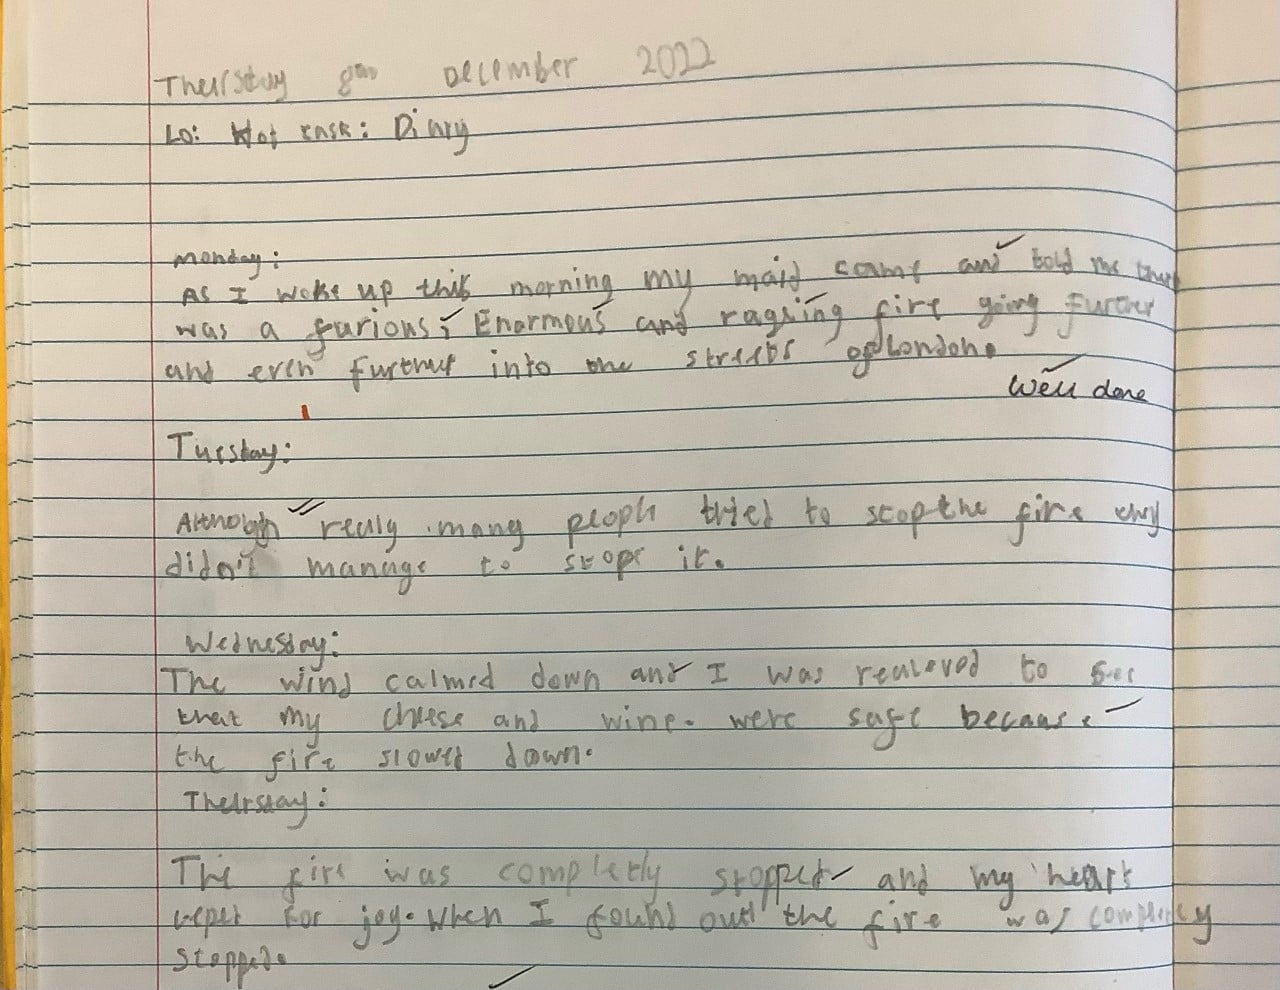 Thursday 8th December 2022
Lo: Hot task: Diary
Monday:
As I woke up this morning my maid came and told me
was a furious, Enormous and ragsing fire going further
and even further into the streets of London.
Well done
Tuesday:
Although really many people tried to stop the fire they
didn't manage to stope it.
Wednesday:
The wind calmed down and I was realeved to see
that my cheese and wine were safe because
the fire slowed down.
Theirsday:
The fire was completly stopped and my heart
lepet for joy. When I found out the fire was completly
stopped.